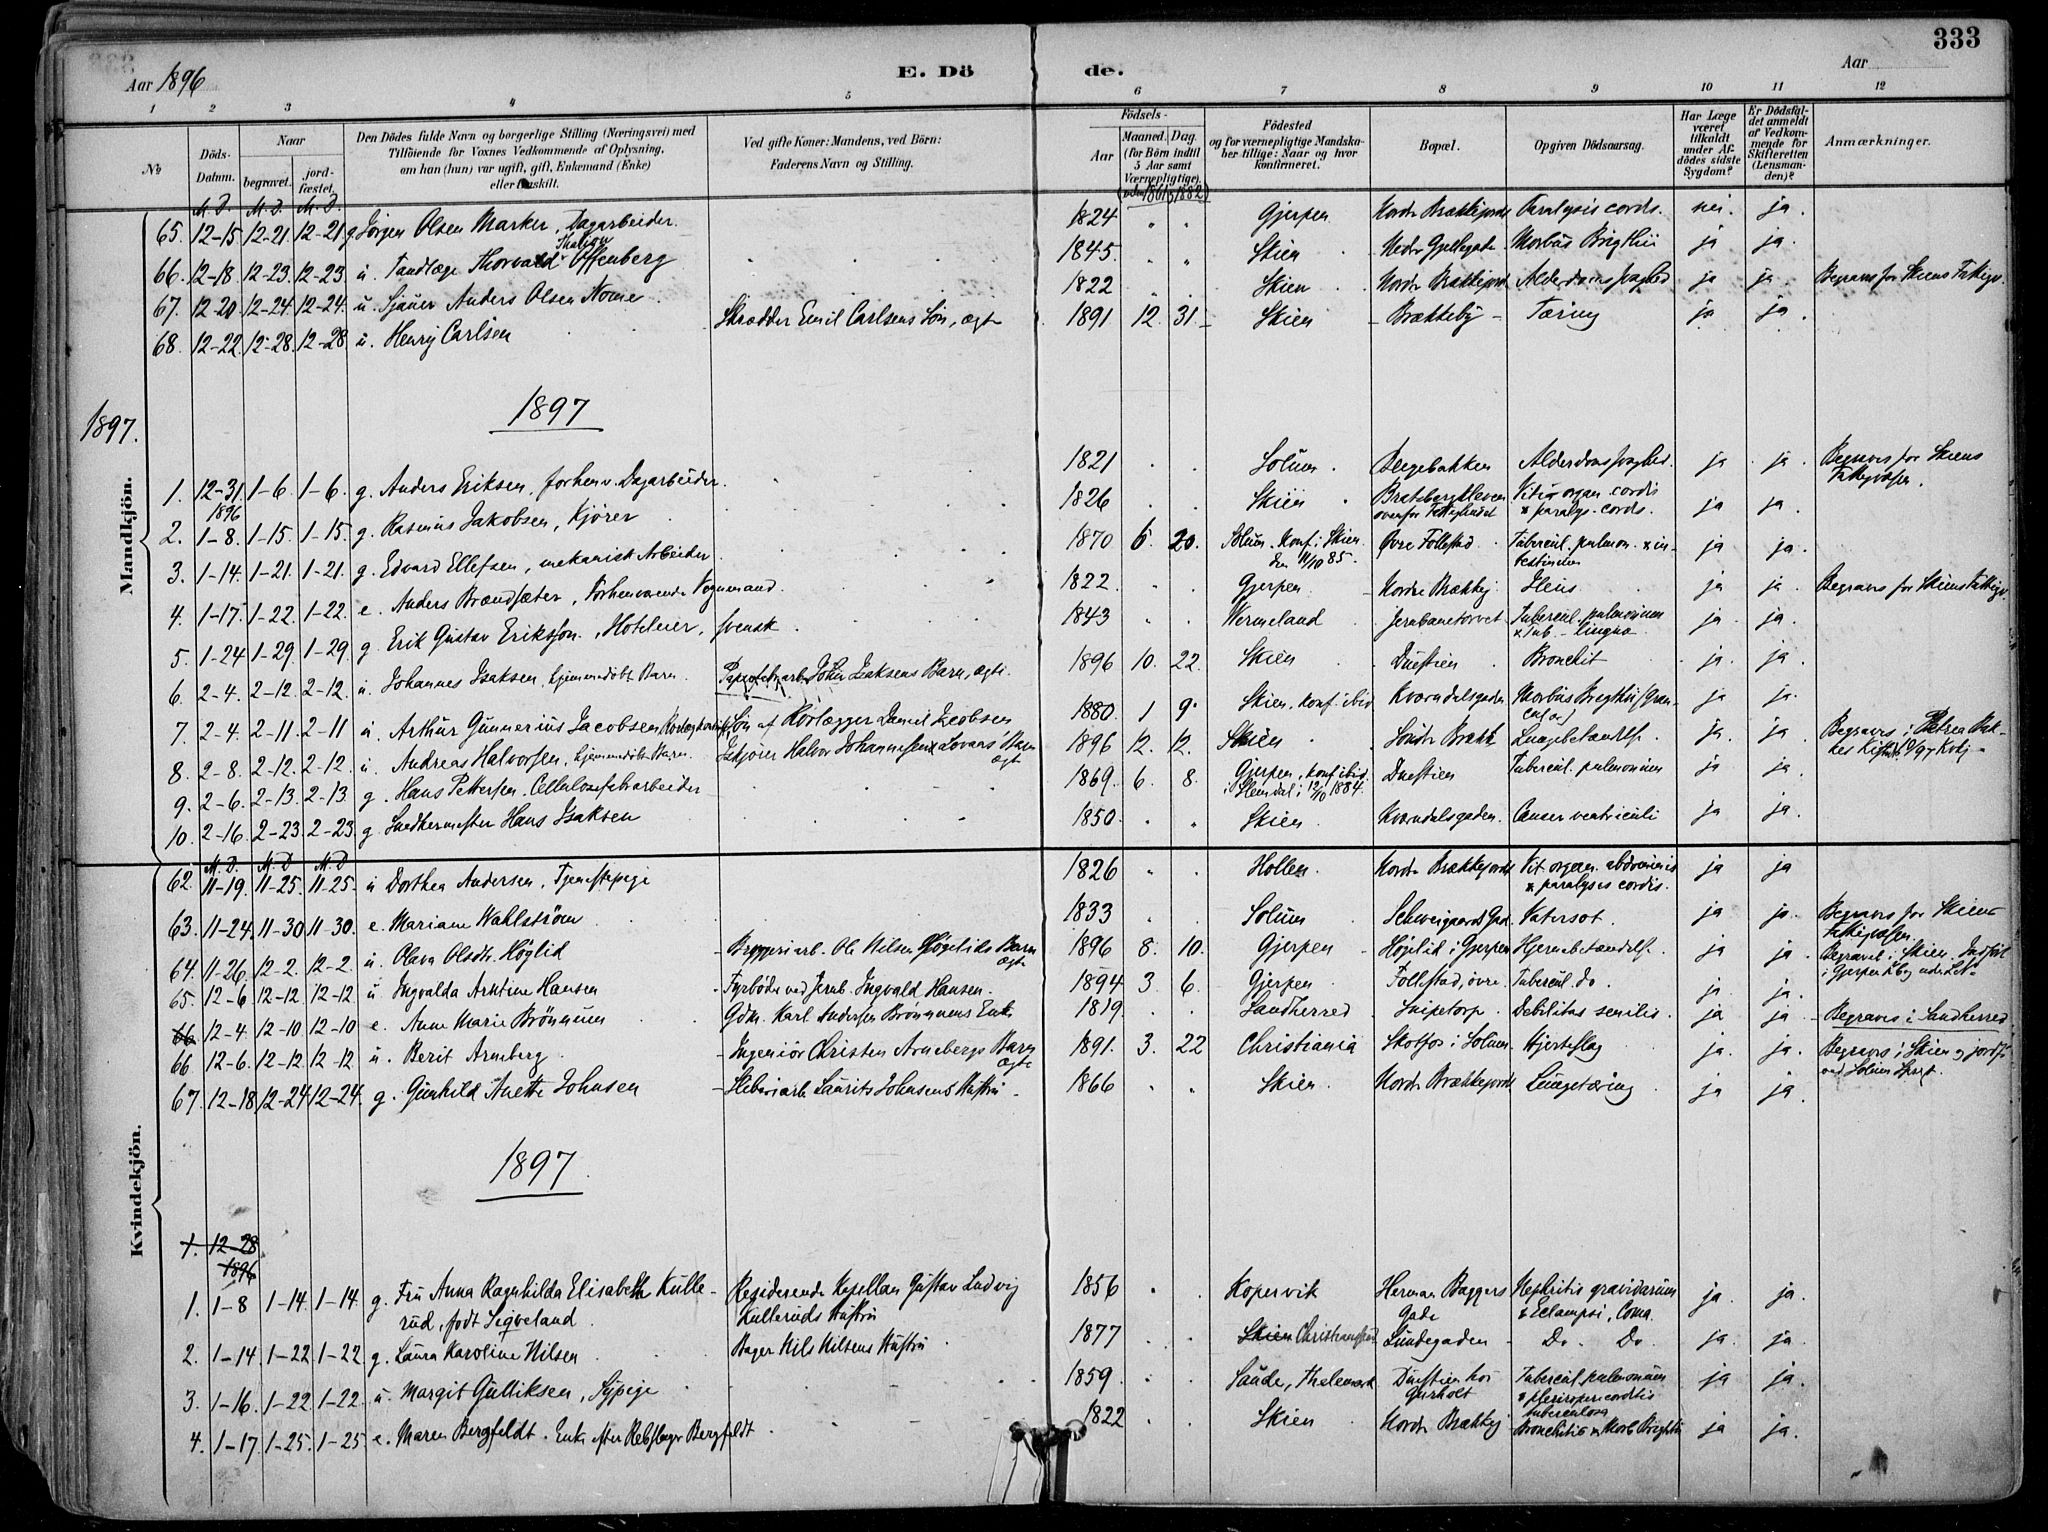 333
Aar 1896
E. Dö de.
Aar
1 2 3 4 5 6 7 8 9 10 11 12
№
Döds-Datum.
Naar
begravet.
jord-fæstet.
Den Dödes fulde Navn og borgerlige Stilling (Næringsvei) med
Tilföiende for Voxnes Vedkommende af Oplysning,
om han (hun) var ugift, gift, Enkemand (Enke)
eller fraskilt.
Ved gifte Koner: Mandens, ved Börn:
Faderens Navn og Stilling.
Födsels-
Aar
Maaned. Dag.
(for Börn indtil
5 Aar samt
Værnepligtige).
Födested
og for værnepligtige Mandska-
ber tillige: Naar og hvor
konfirmeret.
Bopæl.
Opgiven Dödsaarsag.
Har Læge
været
tilkaldt
under Af-
dödes sidste
Sygdom?
Er Dödsfal-
det anmeldt
af Vedkom-
mende for
Skifteretten
(Lensman-
den)?
Anmærkninger.
M. D. M. D. M. D.
65. 12-15. 12-21 12-21 g. Jörgen Olsen Marker, Dagarbeider. 1824 Gjerpen Nordr. Brækkejordet Paralysis cordis. nei. ja.
66. 12-18. 12-23. 12-23 u. Tandlæge Thorvald Offenberg 1845. Skien Nedr. Gjeltegade Morbus Brigthii ja ja.
67. 12-20. 12-24. 12-24. u. Sjauer Anders Olsen Nome. 1822 Skien Nordr. Brækkejord. Alderdomssvaghed ja ja. Begraves for Skiens Fattigv.
68. 12-22. 12-28. 12-28. u. Henry Carlsen Skrædder Emil Carlsens Sön, ægte 1891 12. 31 Skien Brækkeby Tæring ja ja.
1897.
1897
Mandkjön.
1. 12-31 1896 1-6. 1-6. g. Anders Eriksen, forhenv. Dagarbeider. 1821 Solum Bergebakken Alderdomssvaghed. ja ja. Begraves for Skiens
Fattigvæsen.
2. 1-8. 1-15. 1-15. g. Rasmus Jakobsen, Kjörer 1826 Skien Bratsbergkleven
overfor Fattighuset Vitia organ. cordis
& paralys. cordis. ja ja
3. 1-14. 1-21. 1-21. g. Edvard Ellefsen, mekanisk Arbeider 1870 6. 20. Solum. Konf. i Skien
den 11/10 85. Övre Follestad Tubercul. pulmon. & in-
testinden ja ja.
4. 1-17. 1-22. 1-22. e. Anders Brændsæter, Forhenværende Vognmand. 1822 Gjerpen Nordre Brækkej Ileus ja ja. Begraves for Skiens Fattigv.
5. 1-24 1-29. 1-29. g. Erik Gustav Eriksson, Hoteleier, svensk 1843 Wermeland Jernbanetorvet Tubercul. pulmonum
& Tub. lingua ja ja.
6. 2-4. 2-12. 2-12. u. Johannes Isaksen, hjemmedöbt Barn. Papirfabrarb. Johan Isaksens Barn, ægte. 1896 10. 22. Skien Duestien Bronchit ja. ja.
7. 2-4. 2-11. 2-11 u. Arthur Gunnerius Jacobsen Sön af Rörlægger Daniel Jacobsen 1880 1 9. Skien, konf. ibid Kværndalsgaden Morbus Brigthii ja ja.
8. 2-8. 2-12. 2-12. u. Andreas Halvorsen, hjemmedöbt Barn. Iskjörer Halvor Johannesen Barn
ægte 1896 12. 12. Skien Söndr. Brække Lungebetændelse ja. ja. Begraves i Petrea Bak-
9. 2-6. 2-13. 2-13. g. Hans Pettersen, Cellulosefabrarbeider 1869. 6. 8. Gjerpen, konf. ibid.
12/10 1884. Duestien Tubercul. pulmonum ja ja.
10. 2-16. 2-23. 2-23. g. Snedkermester Hans Isaksen 1850. Skien Kværndalsgaden. Cancer ventriculi ja ja.
Kvindekjön.
M. D. M. D M. D
62. 11-19. 11-25. 11-25. u Dorthea Andersen, Tjenestepige 1826 Hollen. Nordr. Brækkejordet Vit. organ. abdominis
& paralysis cordis. ja ja
63. 11-24. 11-30 11-30. e. Mariane Wahlström 1833 Solum Schweigaards Gad. Vatersot. ja ja. Begraves for Skiens
Fattigvæsen.
64. 11-26. 12-2. 12-2. u. Olava Olsdtr. Höglid Bryggeriarb. Ole Nilsen Högelids Barn
ægte 1896 8. 10. Gjerpen Högelid i Gjerpen Hjernebetændelse. ja ja. Begravet i Skien. Indfört
65. 12-6 12-12 12-12 u Ingvalda Arntine Hansen Fyrböder ved Jernb. Ingvald Hansen. 1894 3. 6. Gjerpen Follestad, övre. Tubercul. Do. ja. ja.
66 12-4. 12-10 12-10 e. Anne Marie Brönnum Gdm. Karl Andersen Brönnums Enke 1819 Sandherred Snipetorp Debilitas senilis. ja ja Begraves i Sandherred
66 12-6. 12-12 12-12 u. Berit Arneberg Ingeniör Christen Arnebergs Barn
ægte 1891. 3. 22 Christiania Skotfos i Solum Hjerteslag ja. ja. Begraves i Skien og jordf.
67. 12-18 12-24 12-24. g. Gunhild Anette Johnsen Sliberiarb Laurits Johnsens Hustru 1866 Skien. Nordr. Brækkejord Lungetæring ja ja.
1897.
1. 12-28
1896
1. 1-8 1-14 1-14 g. Fru Anna Ragnhilda Elisabeth Kulle-
rud, född Sigveland Residerende Kapellan Gustav Ludvig
Kulleruds Hustru 1856 Kopervik Herman Baggers
Gade Nephritis gravidarum
& Eclampsi, Coma. ja. ja.
2. 1-14 1-22 1-22 g. Laura Karoline Nilsen Bager Nils Nilsens Hustru 1877 Skien Christianstad Lundegaden Do. Do. ja. ja.
3 1-16. 1-22 1-22 u. Margit Gulliksen, Sypige 1859 Saude, Thelemark Duestien hos
Gurholt Tubercul. pulmonum
tuberculosa ja ja.
4. 1-17 1-25. 1-25 e. Maren Bergfeldt. Enke efter Rebslager Bergfeldt 1822 Skien Nordr. Brækkej Bronchitis & Morb Brigthii ja ja.